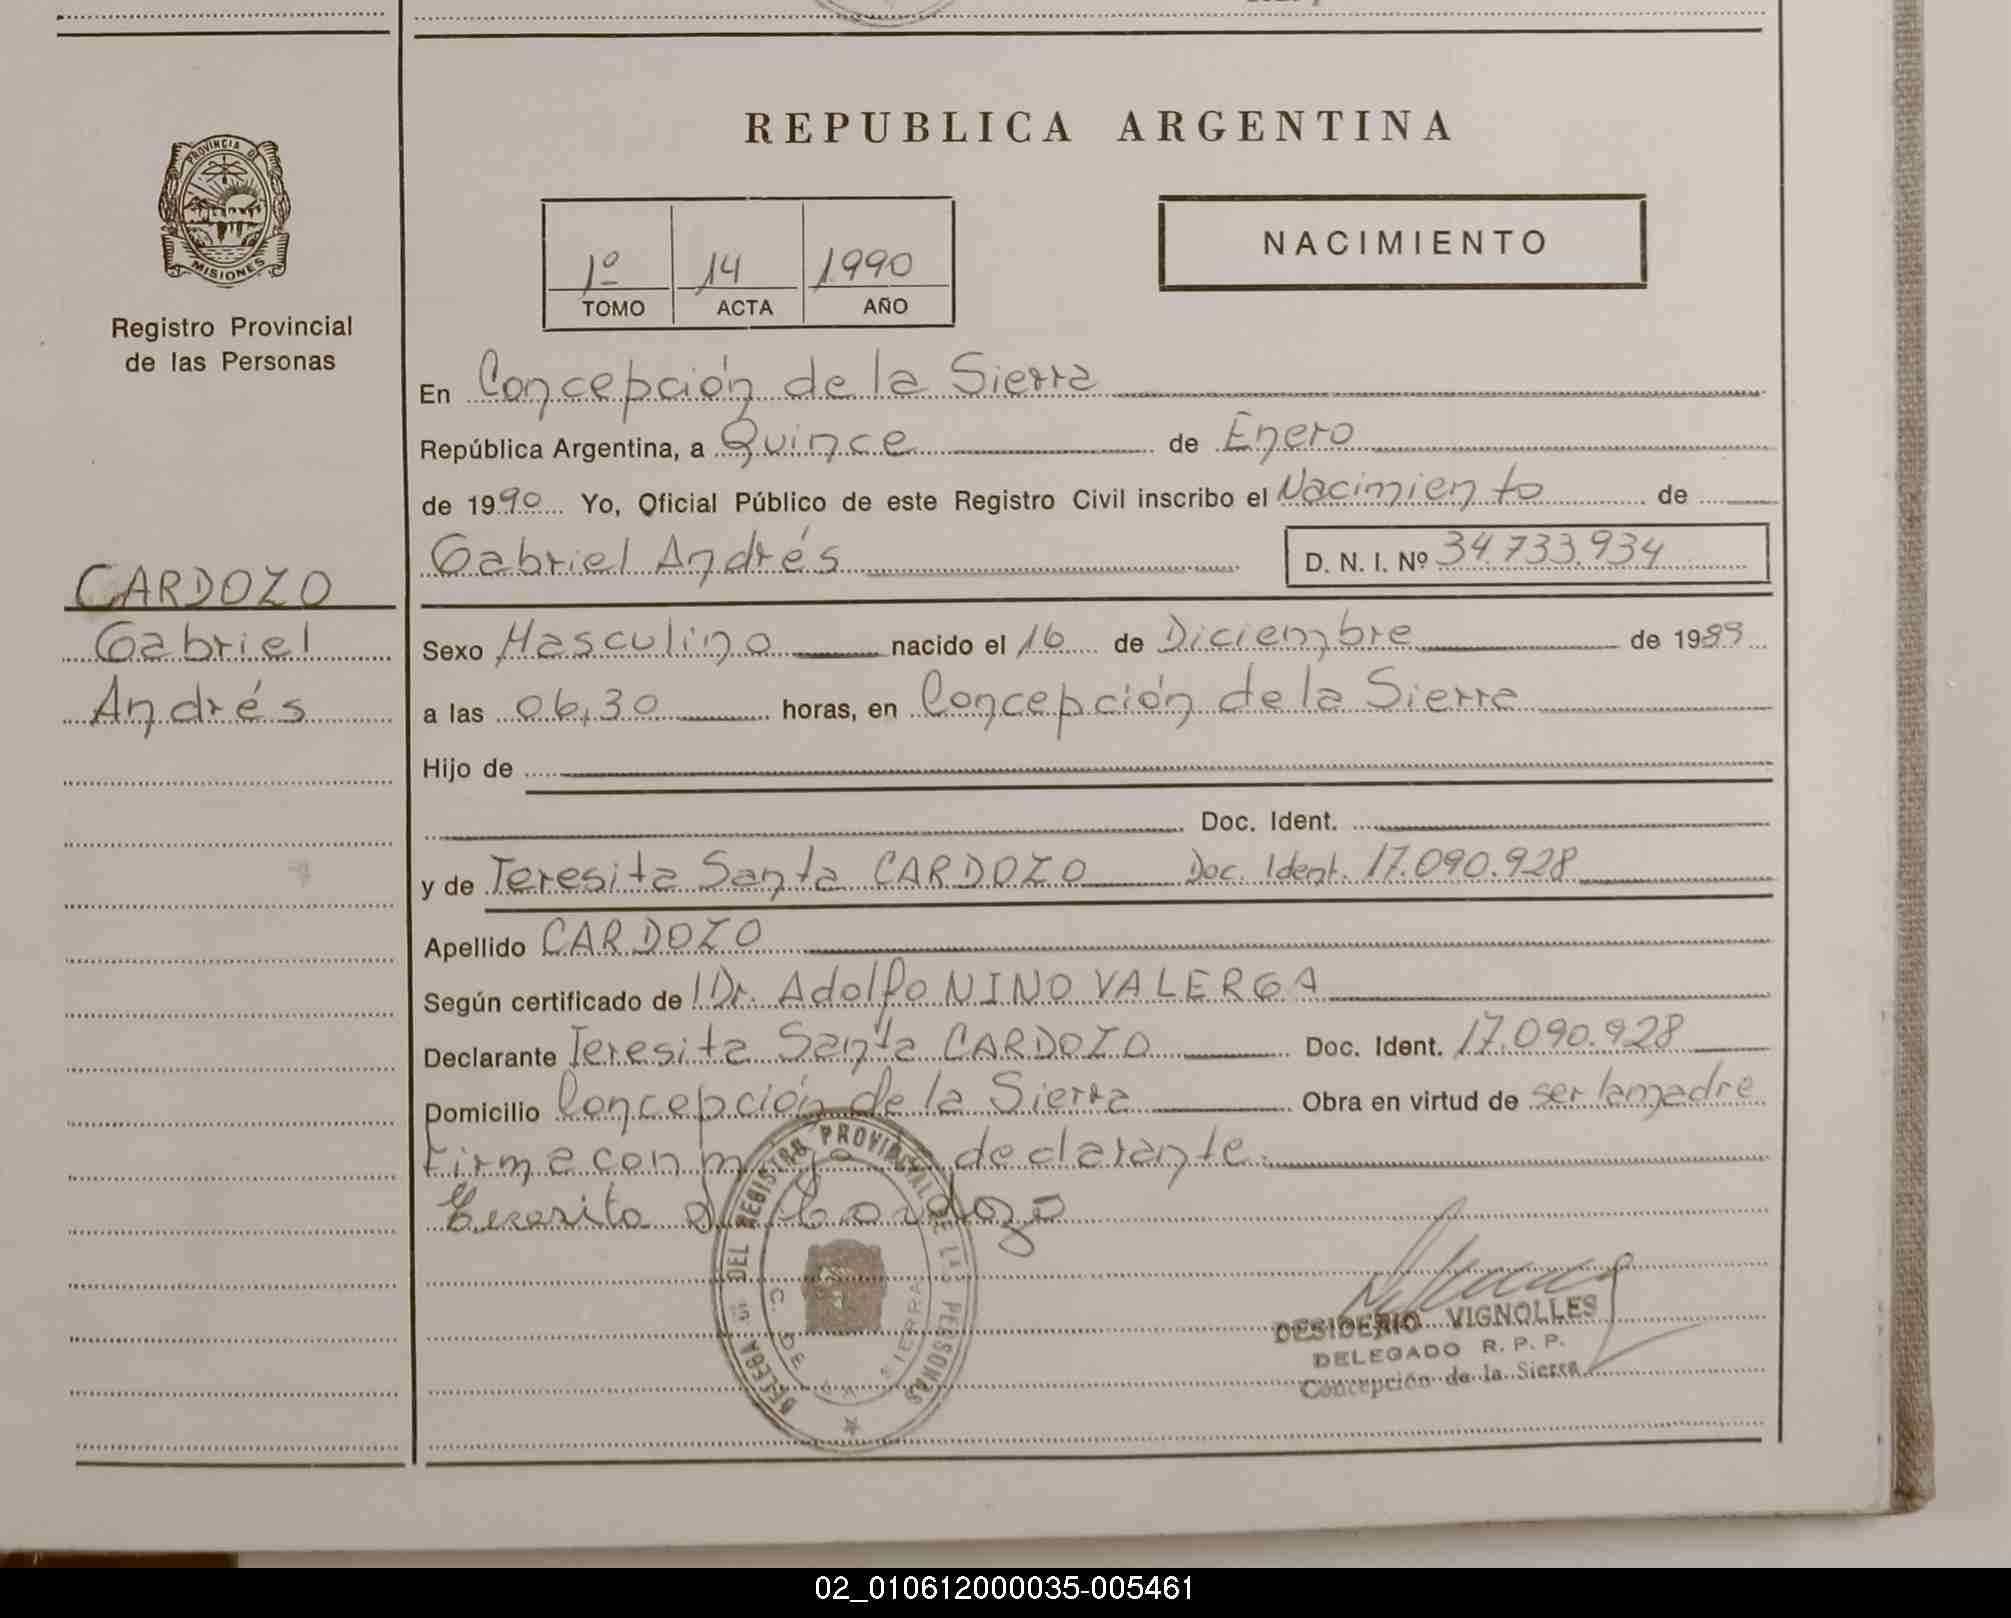 PROVINCIA DE
MISIONES
Registro Provincial
de las Personas
CARDOZO
Gabriel
Andrés
REPUBLICA ARGENTINA
1º 14 1990
TOMO ACTA AÑO
NACIMIENTO
En Concepción de la Sierra
República Argentina, a Quince de Enero
de 1990 Yo, Oficial Público de este Registro Civil inscribo el Nacimiento de
Gabriel Andrés D. N. I. Nº 34.733.934
Sexo Masculino nacido el 16 de Diciembre de 1989
a las 06,30 horas, en Concepción de la Sierra
Hijo de
Doc. Ident.
y de Teresita Santa CARDOZO Doc. Ident. 17.090.928
Apellido CARDOZO
Según certificado de Dr. Adolfo NINO VALERGA
Declarante Teresita Santa CARDOZO Doc. Ident. 17.090.928
Domicilio Concepción de la Sierra Obra en virtud de ser la madre
Firma con declarante.
Cardozo
DEL REGISTRO PROVINCIAL DE LAS PERSONAS
C. DE LA SIERRA
DESIDERIO VIGNOLLES
DELEGADO R. P. P.
Concepción de la Sierra
02_010612000035-005461